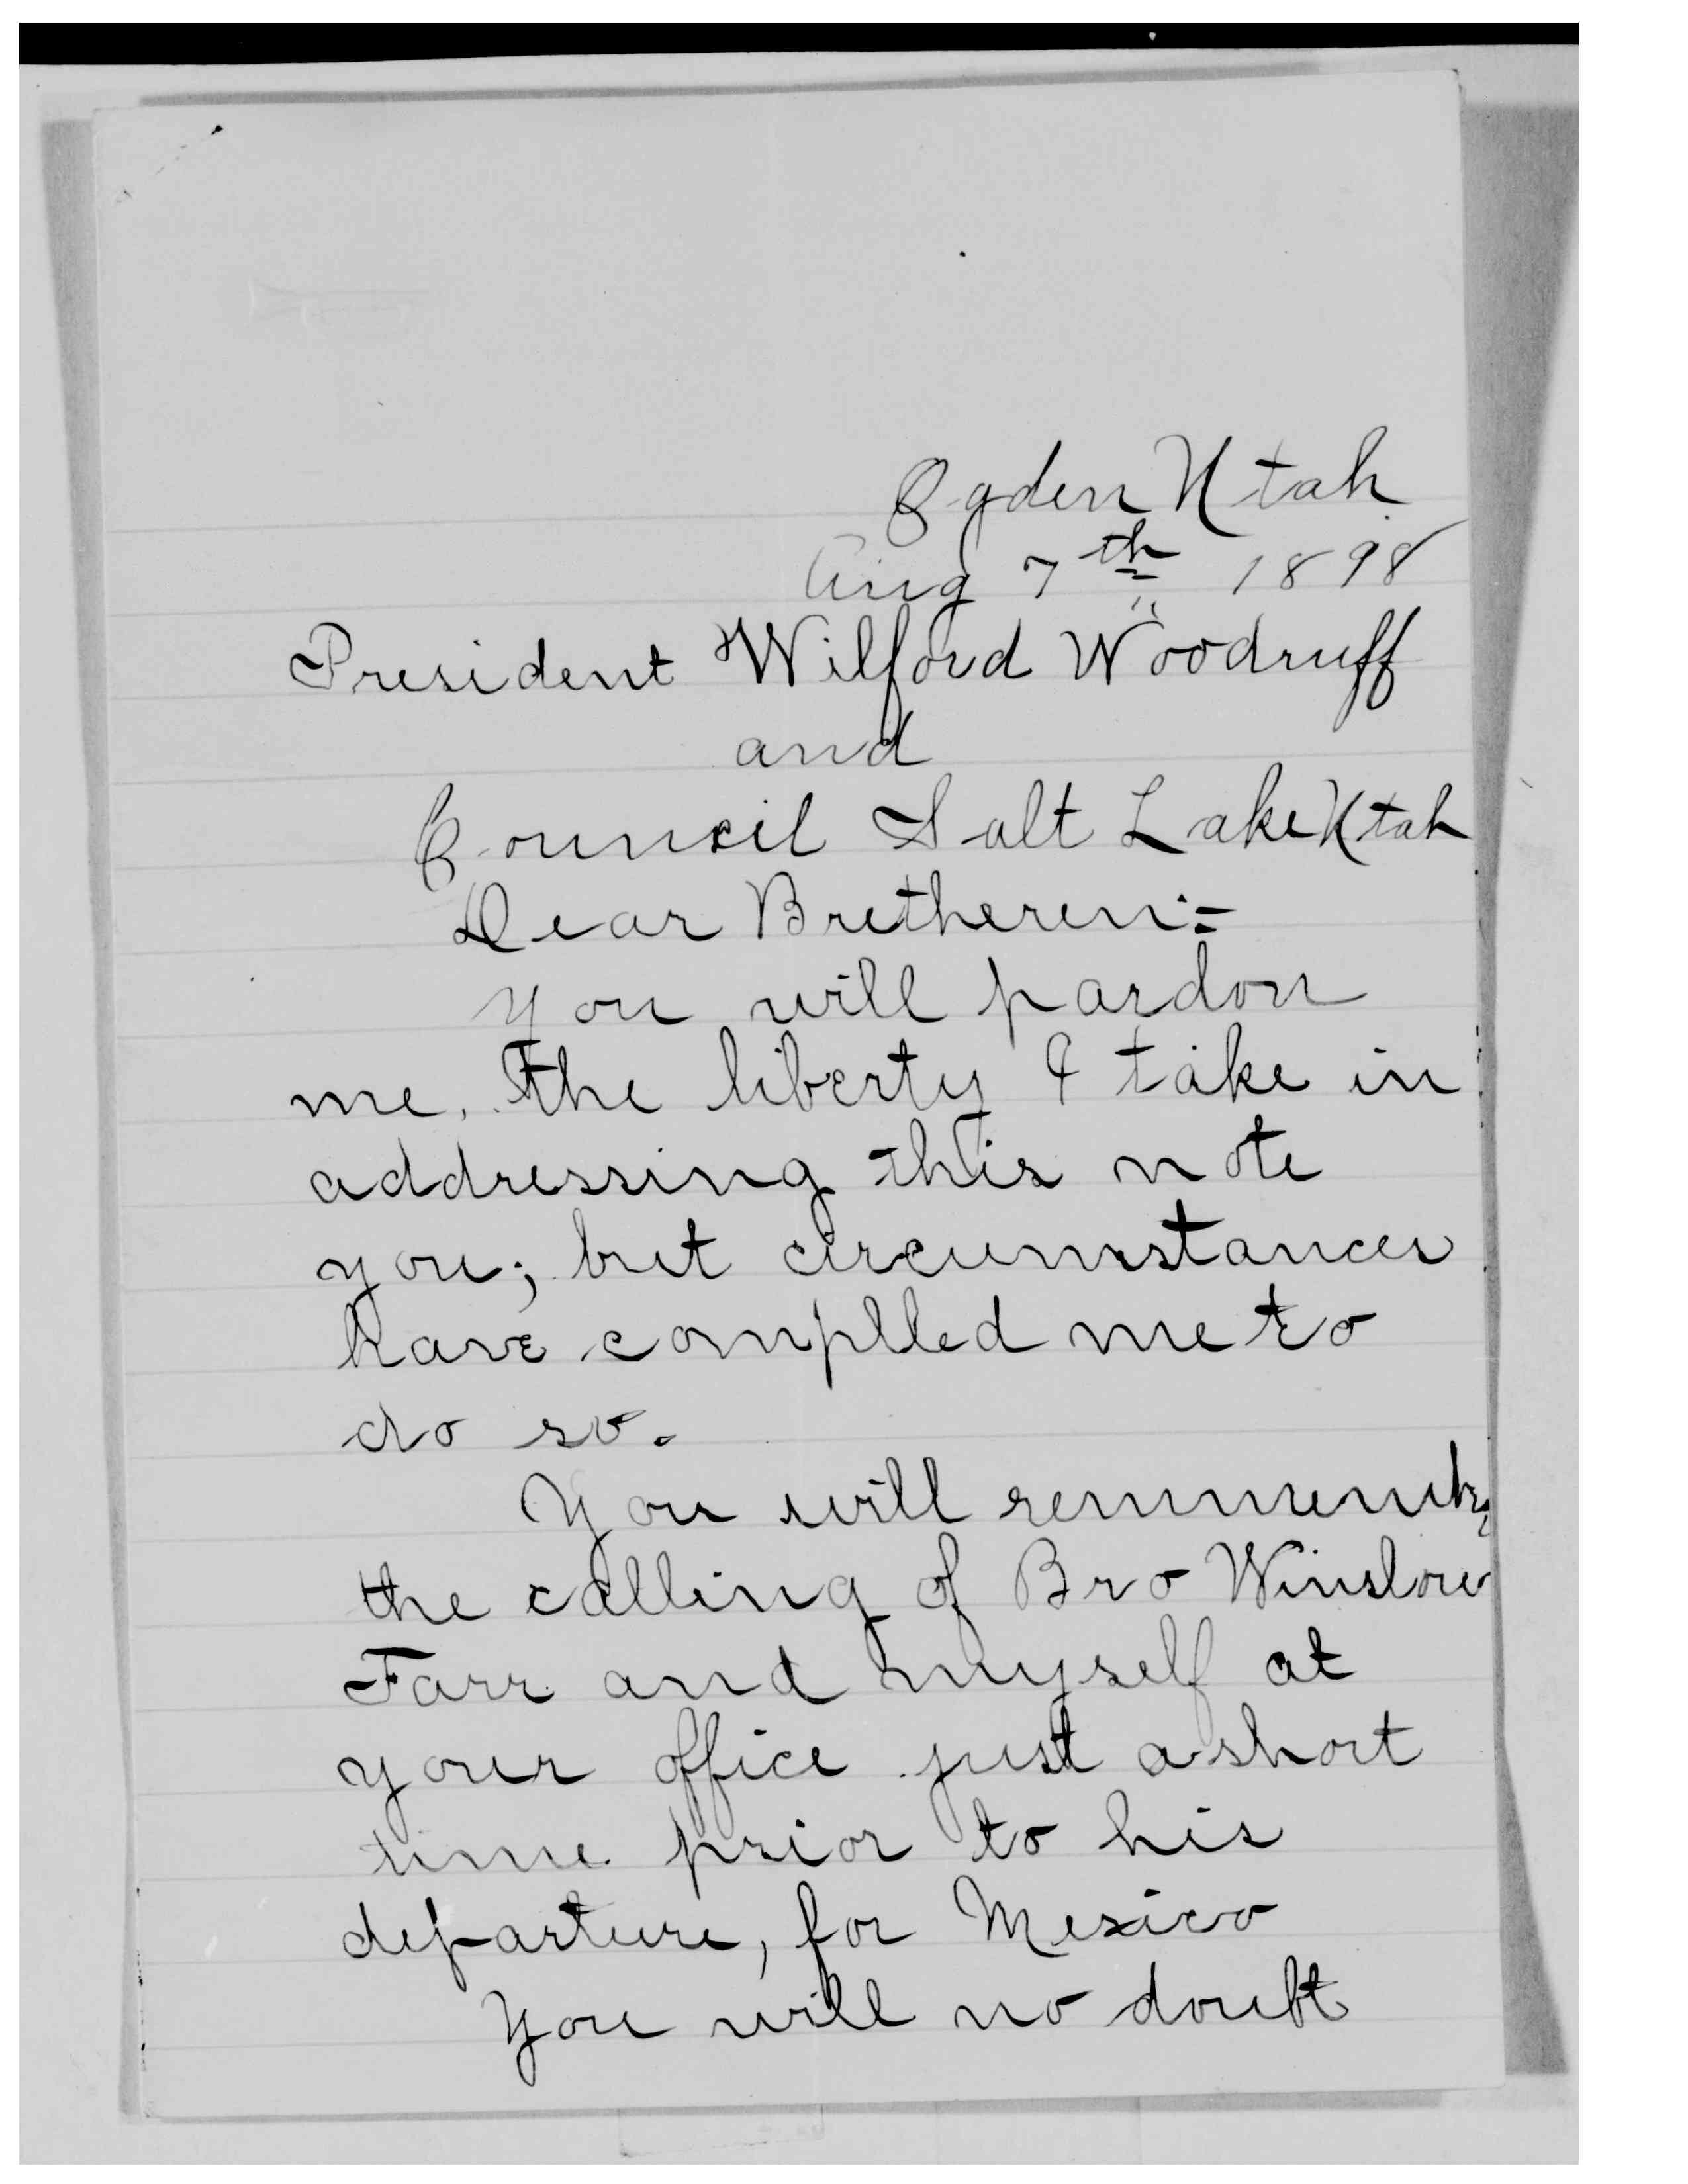 Ogden Utah
Aug 7th 1898
President Wilford Woodruff
and
Council Salt Lake Utah
Dear Bretheren:=
You will pardon
me, the liberty I take in
addressing this note
you; but circumstances
have complled me to
do so.
You will
the calling of Bro Winslow
Farr and myself at
your office just a short
time prior to his
departure, for Mexico
You will no doubt